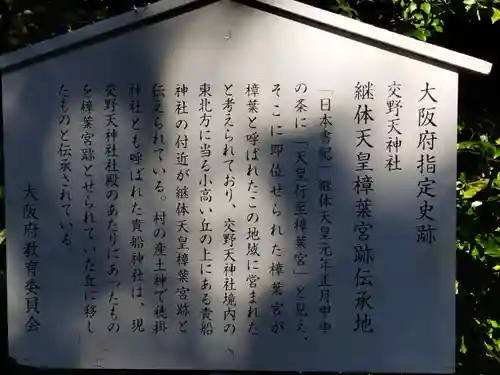 大阪府指定史跡
交野天神社
継体天皇樟葉宮跡伝承地
「日本書紀」継体天皇元年正月甲申
の条に、「天皇行至樟葉宮」と見え、
そこに即位せられた樟葉宮が
樟葉と呼ばれたこの地域に営まれた
と考えられており、交野天神社境内の
東北方に当る小高い丘の上にある貴船
神社の付近が継体天皇樟葉宮跡と
伝えられている。村の産土神で穂掛
神社とも呼ばれた貴船神社は、現
交野天神社社殿のあたりにあったもの
を樟葉宮跡とせられていた丘に移し
たものと伝承されている。
大阪府教育委員会